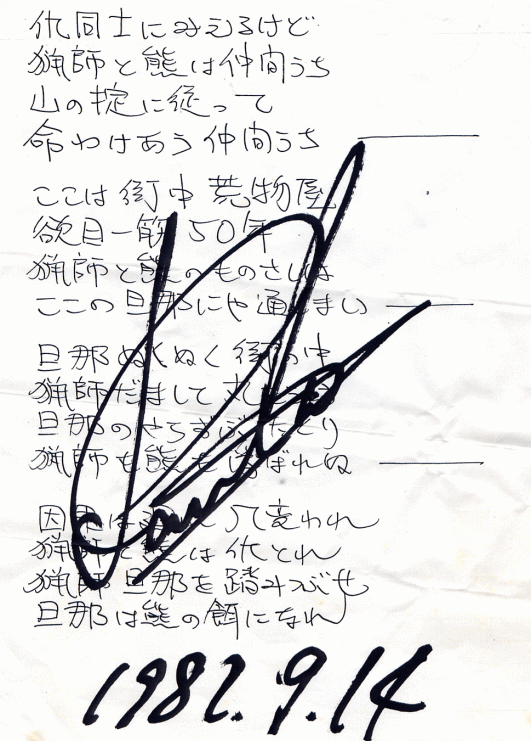 仇同士にみえるけど
猟師と熊は仲間うち
山の掟に従って
命わけあう仲間うち
ここは街中荒物屋
欲目一筋50年
猟師と熊のものさしは
ここの旦那にや通じまい
旦那ぬくぬく街の中
猟師だまして
旦那の
猟師も熊も浮ばれぬ
因果は 変われ
猟師と熊は仇とれ
猟師旦那を踏みつぶせ
旦那は熊の餌になれ
1982.9.14